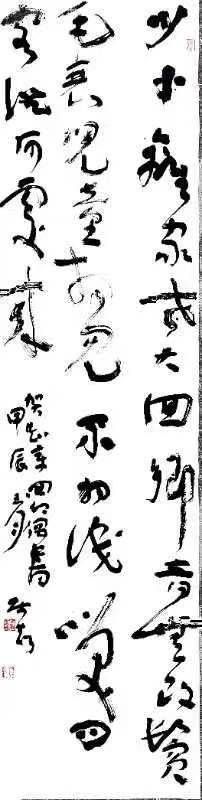 少小離家老大回鄉音無改鬢
毛衰兒童相見不相識笑問
客從何處來
賀知章回鄉偶書
甲辰